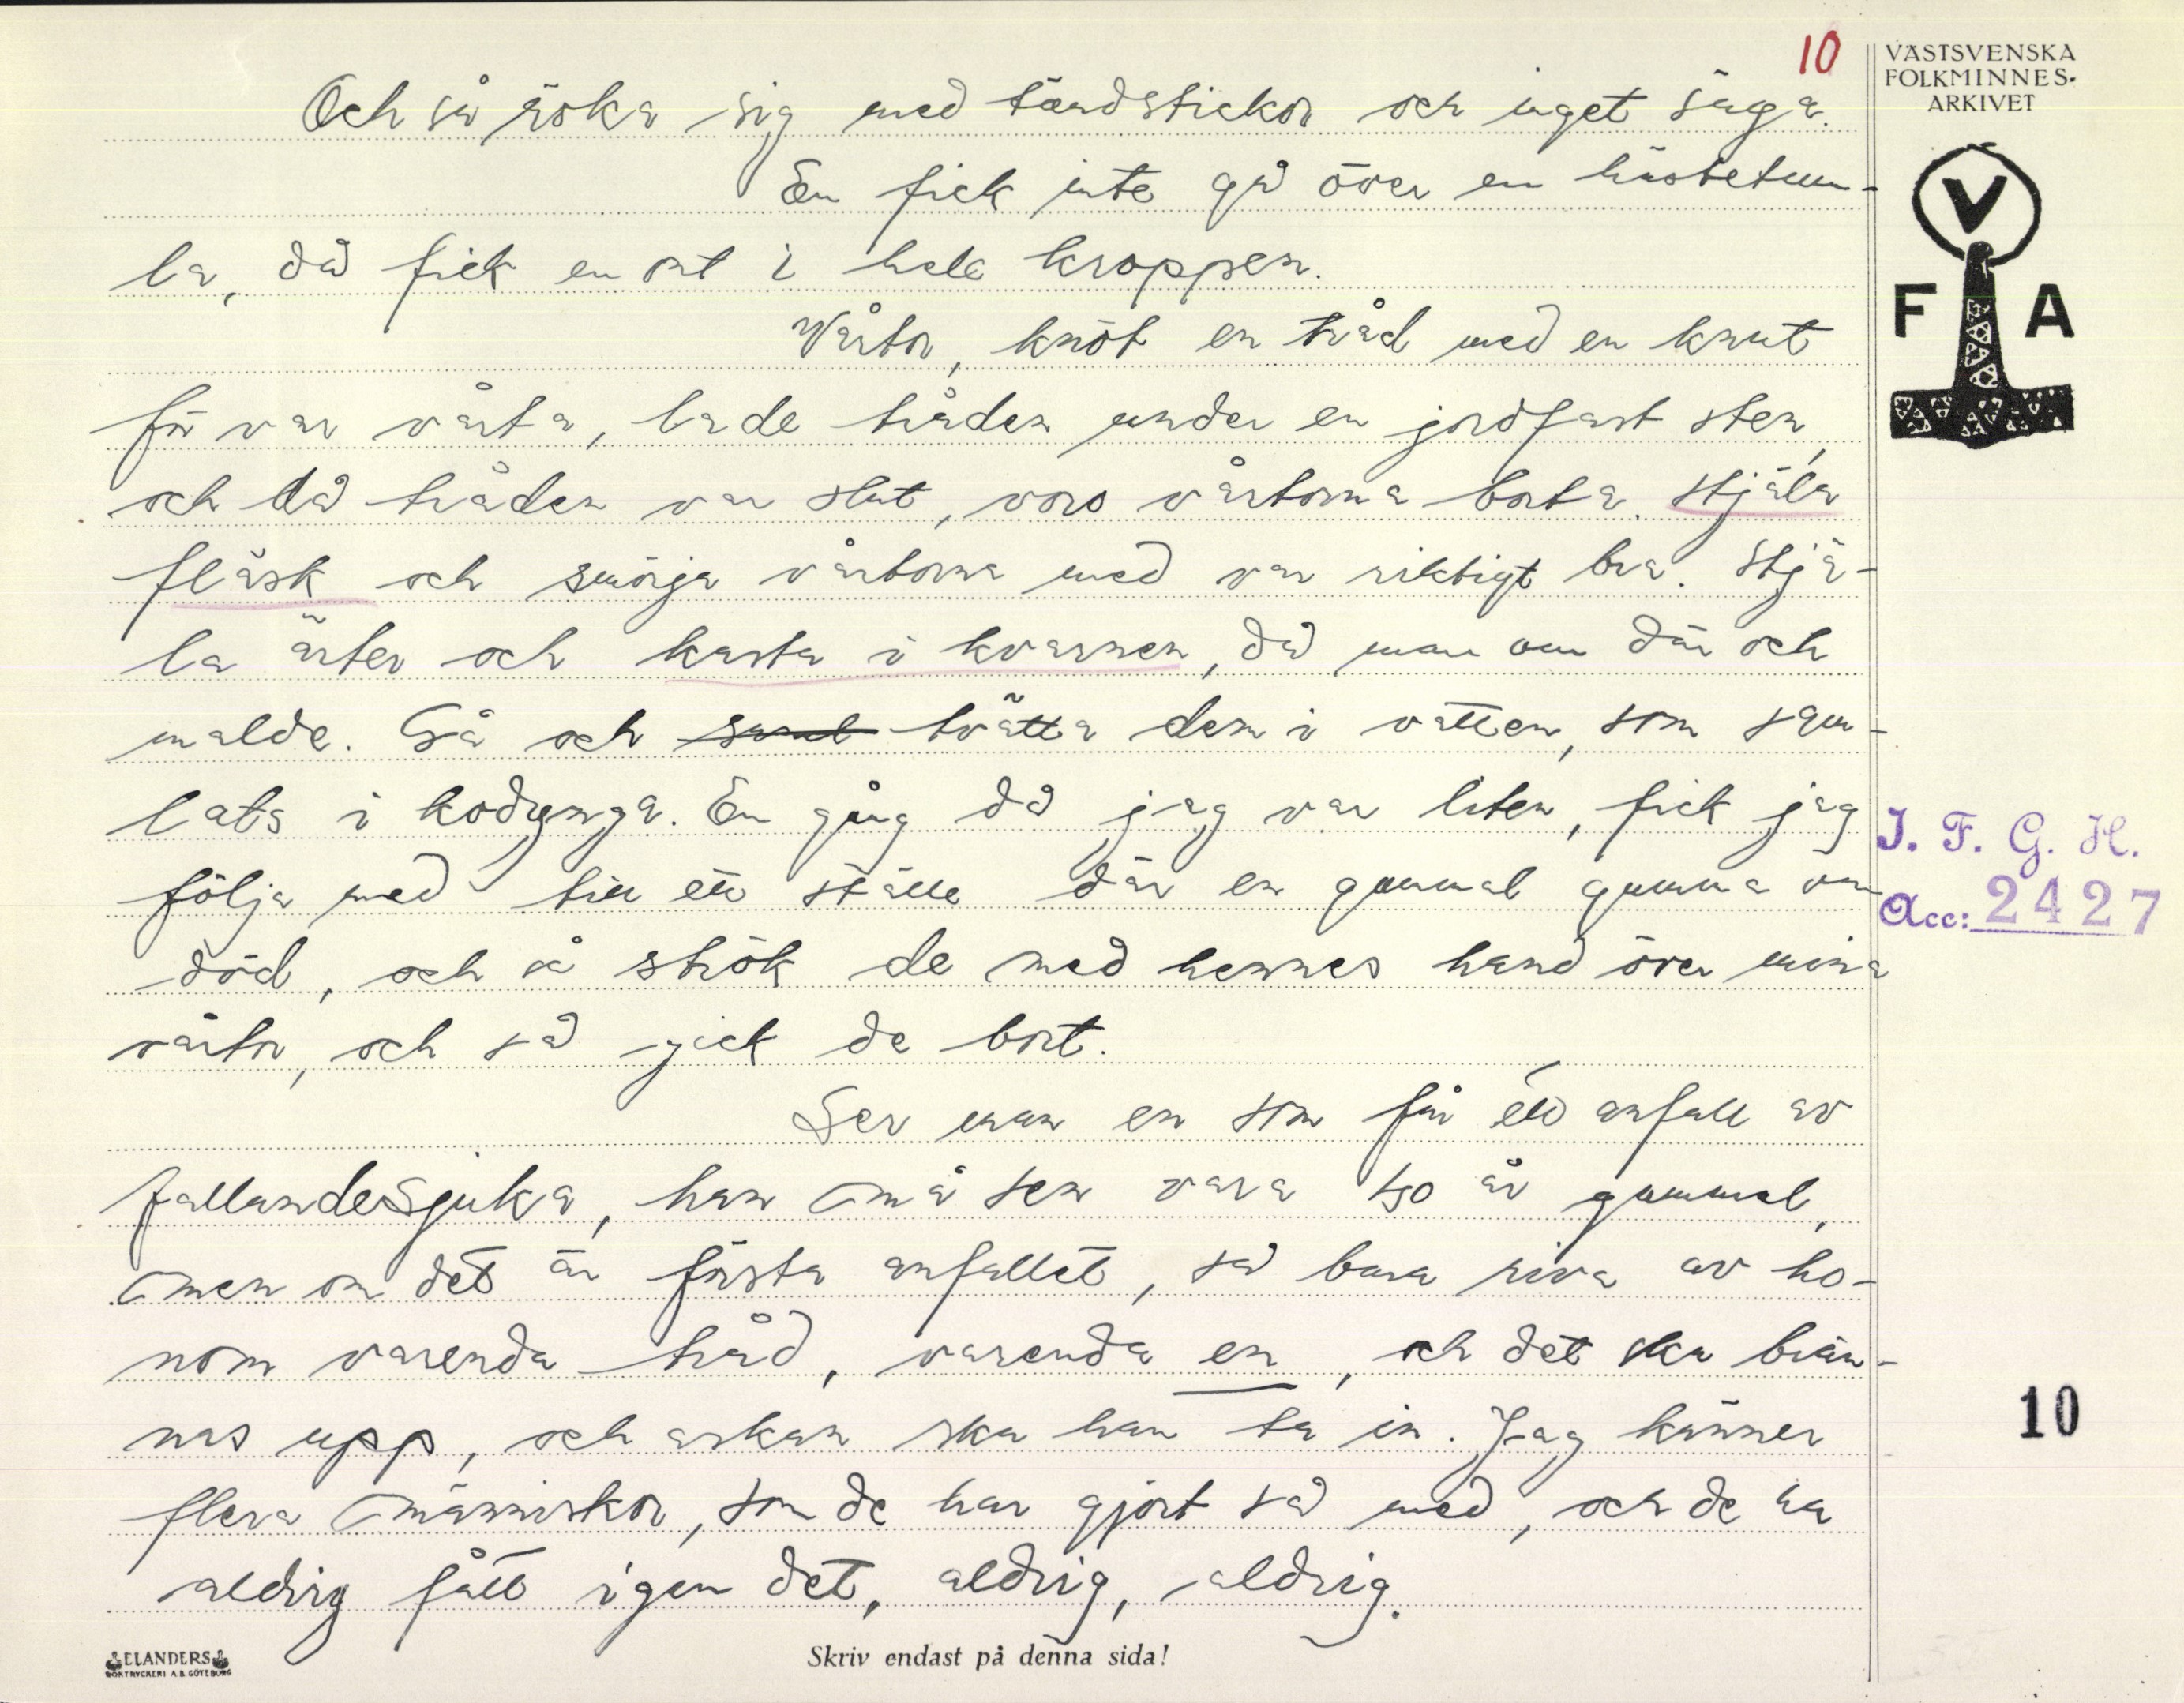 10
VÄSTSVENSKA
FOLKMINNES-
ARKIVET
V
F A
Och så röka sig med tändstickor och inget säga.
En fick inte gå över en hästetum-
la, då fick en ont i hela kroppen.
Vårtor, knöt en tråd med en knut
för var vårta, lade tråden under en jordfast sten,
och då tråden var slut, voro vårtorna borta. Stjäla
fläsk och smörja vårtorna med var riktigt bra. Stjä-
la ärter och kasta i kvarnen, då man om där och
malde. Gå och tvätta dem i vatten, som sam-
lats i kodynga. En gång då jag var liten, fick jag
följa med till ett ställe där en gammal gumma var
död, och så strök de med hennes hand över mina
vårtor, och så gick de bort.
Ser man en som får ett anfall av
fallandesjuka, han må sen vara 50 år gammal,
men om det är första anfallet, så bara riva av ho-
nom varenda tråd, varenda en, och det ska brän-
nas upp, och askan ska han ta in. Jag känner
flera människor, som de har gjort så med, och de ha
aldrig fått igen det, aldrig, aldrig.
I. F. G. H.
Acc: 2427
10
ELANDERS
BOKTRYCKERI A.B. GÖTEBORG
Skriv endast på denna sida!